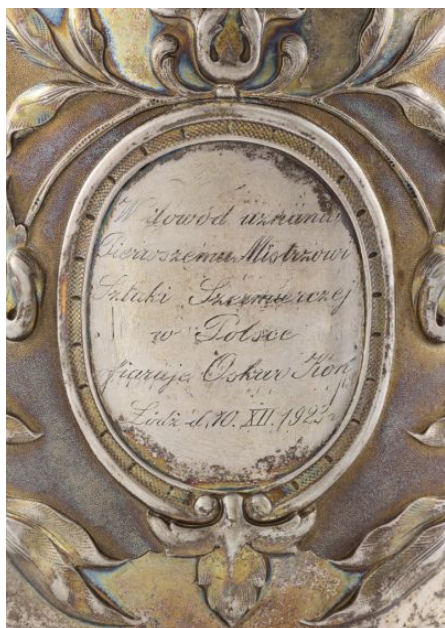 W dowód uznania
Pierwszemu Mistrzowi
Sztuki Szermierczej
w Polsce
ofiaruje Oskar Kon
Łódź d. 10. XII. 1923 r.